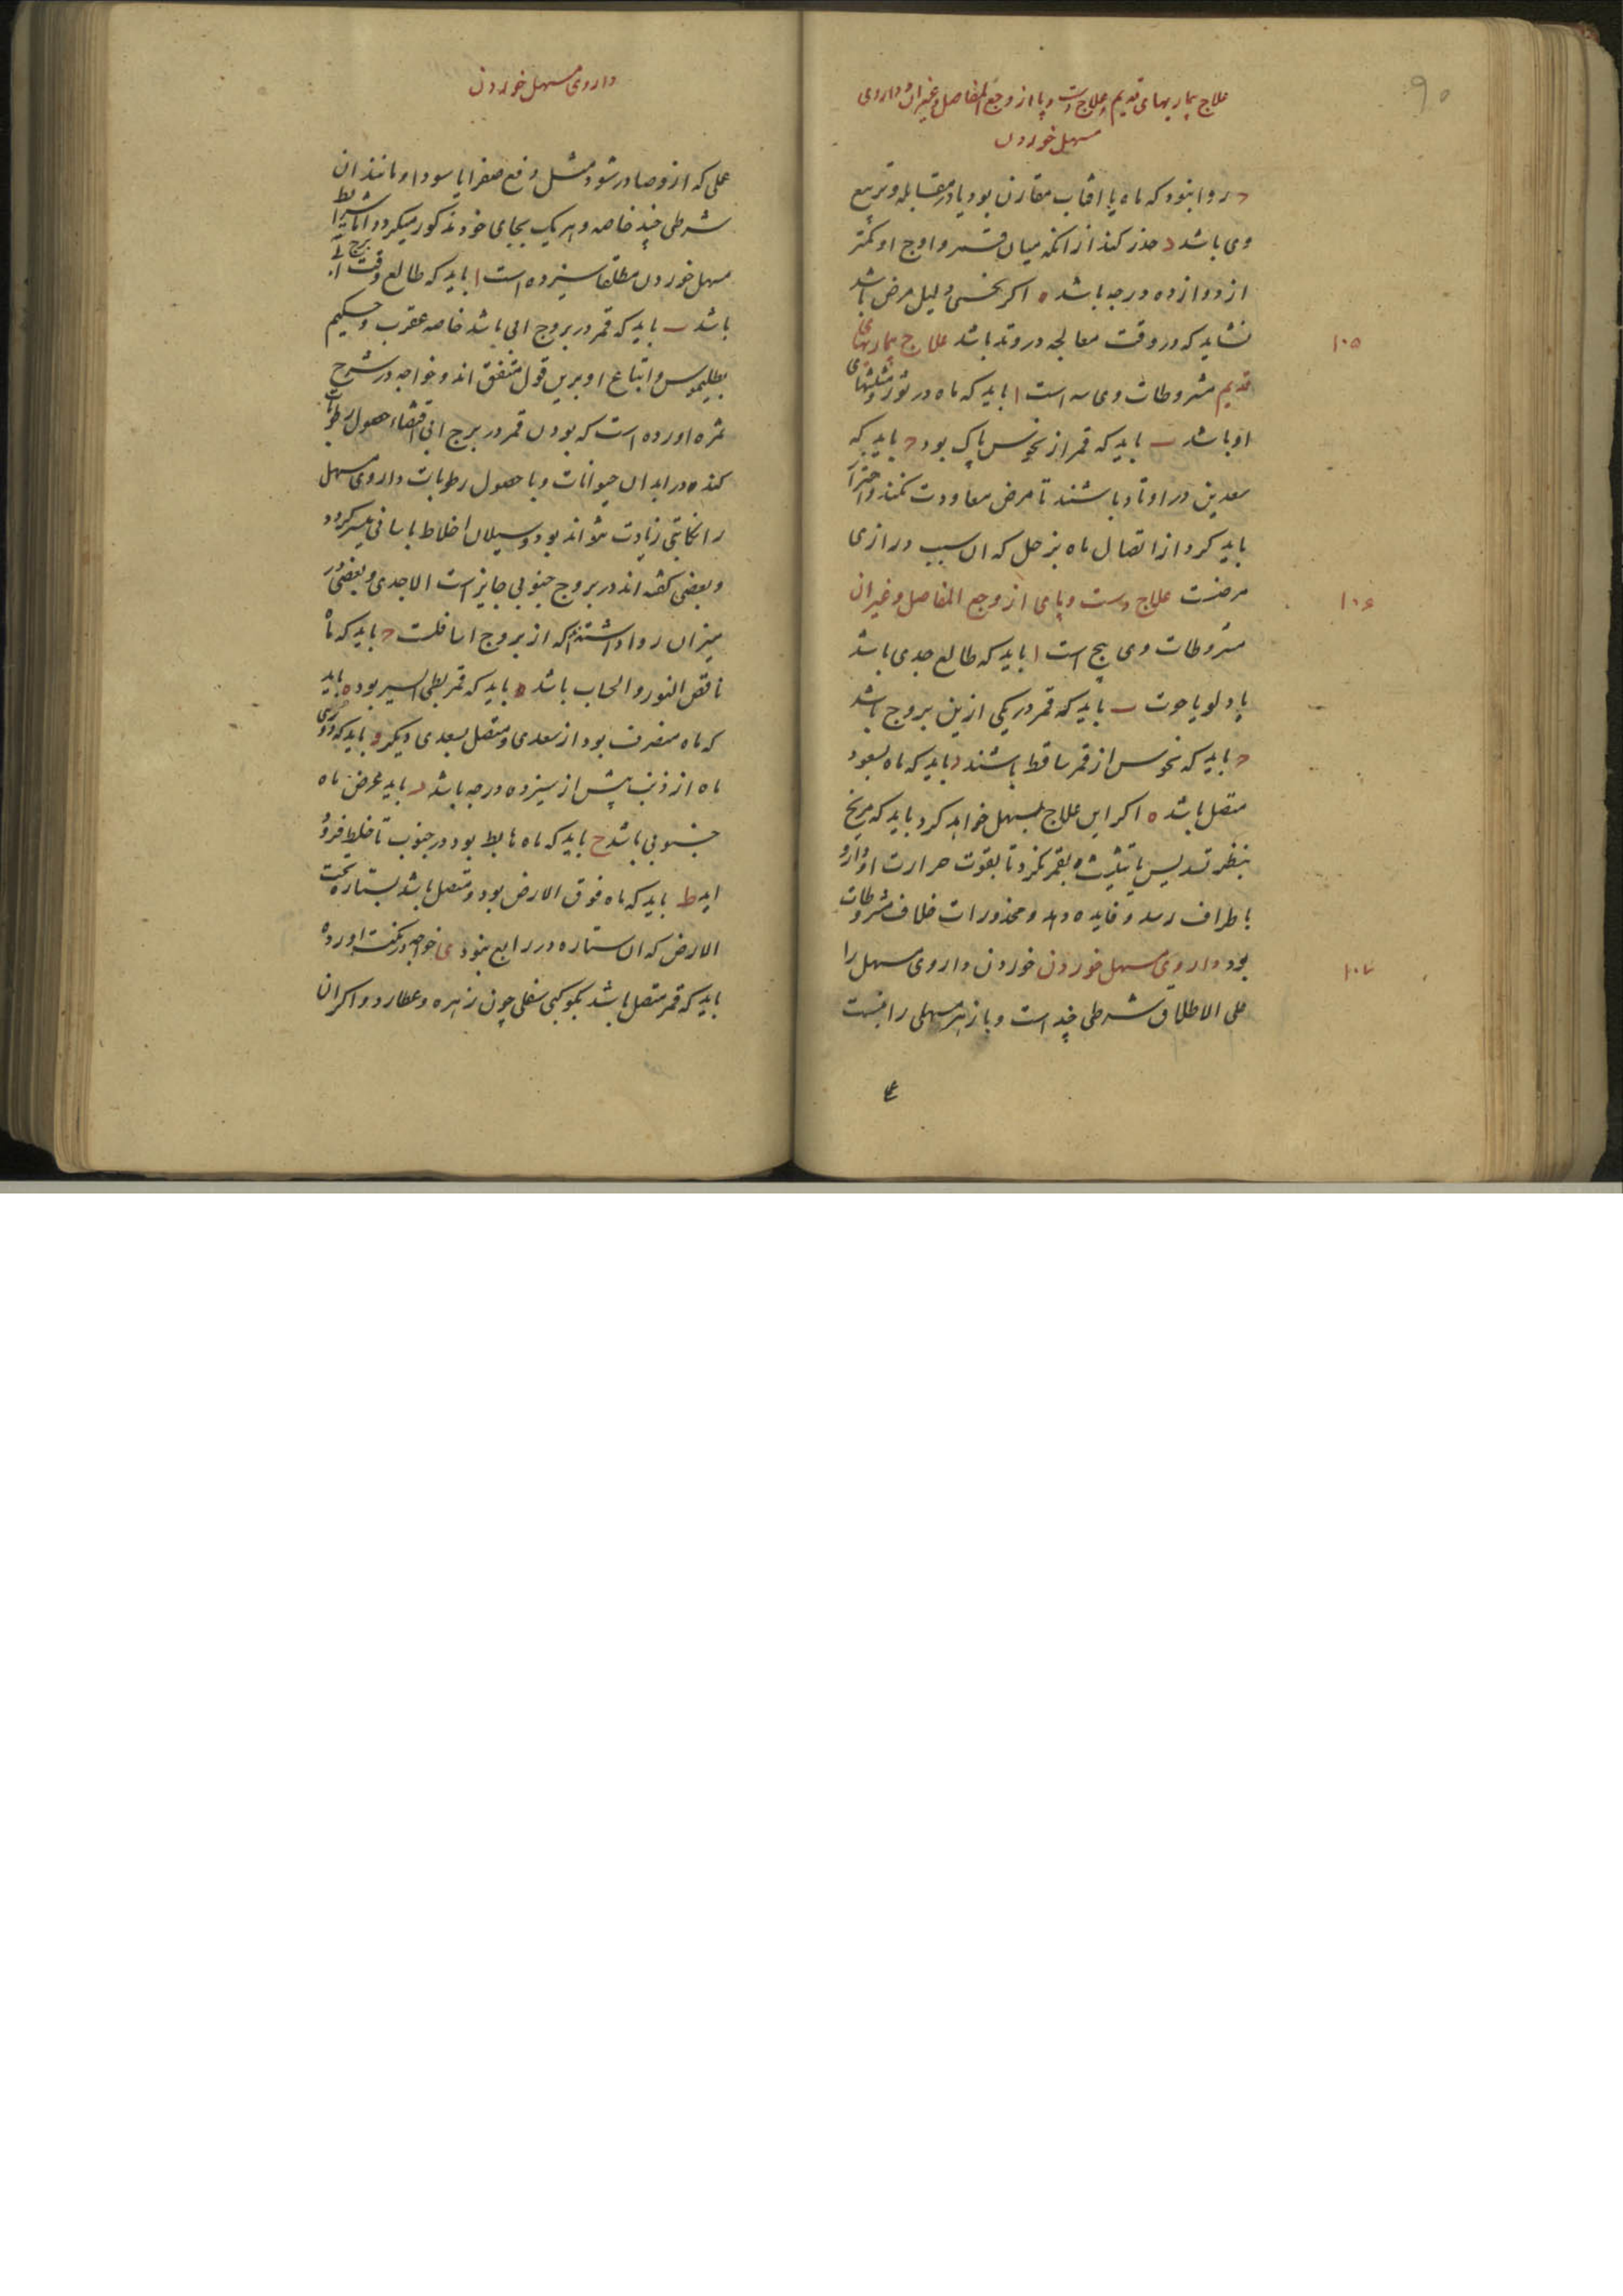 ۹۵
علاج بیماریهای قدیم و علاج دست و پا از وجع المفاصل و غیر ان داروی
مسهل خوردن
ج روا نبود که ماه با افتاب مقارن بود یا در مقابله و تربیع
وی باشد د حذر کند از انکه میان قمر و اوج او کمتر
از دوازده درجه باشد ه اکر نحسی دلیل مرض باشد
نشاید که در وقت معالجه در وتد باشد علاج بیماریهای
۱۰۵
قدیم مشروطات وی سه است ا باید که ماه در ثور و مثلثهای
او باشد ب باید که قمر از نحوس پاک بود ج باید که
سعدین در اوتاد باشند تا مرض معاودت نکند و احتراز
باید کرد از اتصال ماه بزحل که ان سبب درازی
مرضست علاج دست و پای از وجع المفاصل و غیر ان
۱۰۶
مشروطات وی پنج است ا باید که طالع جدی باشد
یا دلو یا حوت ب باید که قمر در یکی ازین بروج باشد
ج باید که نحوس از قمر ساقط باشند د باید که ماه بسعود
متصل باشد ه اکر این علاج بمسهل خواهد کرد باید که مریخ
بنظر تسدیس یا تثلیث بقمر نکرد تا بقوت حرارت او دارو
باطراف رسد و فایده دهد و محذورات خلاف مشروطات
بود داروی مسهل خوردن خوردن داروی مسهل را
۱۰۷
علی الاطلاق شرطی چند است و باز هر مسهلی را نسبت
داروی مسهل خوردن
عملی که ازو صادر شود مثل دفع صفرا یا سودا و مانند ان
شرطی چند خاصه و هر یک بجای خود مذکور میکردد اما شرایط
مسهل خوردن مطلقا سیزده است ا باید که طالع وقت برج ابی
باشد ب باید که قمر در بروج ابی باشد خاصه عقرب و حکیم
بطلیموس و اتباع او برین قول متفق اند و خواجه در شرح
ثمره اورده است که بودن قمر در برج ابی اقتضاء حصول رطوبات
کند در ابدان حیوانات و با حصول رطوبات داروی مسهل
را نکایتی زیادت نتواند بود و سیلان اخلاط باسانی میسر کردد
و بعضی کفته اند در بروج جنوبی جایز است الا جدی و بعضی در
میزان روا داشته اند که از بروج اسافلست ج باید که ماه
ناقص النور و الحساب باشد د باید که قمر بطی السیر بود ه باید
که ماه منصرف بود از سعدی و متصل بسعدی دیکر و باید که دوری
ماه از ذنب پیش از سیزده درجه باشد ز باید عرض ماه
جنوبی باشد ح باید که ماه هابط بود در جنوب تا خلط فرود
اید ط باید که ماه فوق الارض بود و متصل باشد بستاره تحت
الارض که ان ستاره در رابع نبود ی خواجه در اورده
باید که قمر متصل باشد بکوکبی سفلی چون زهره و عطارد و اکر ان